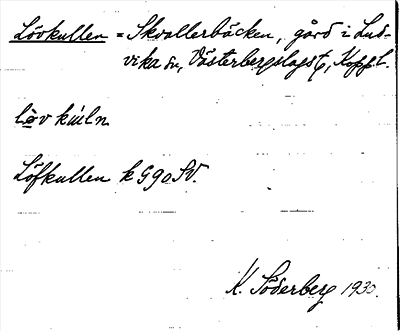 Lövkullen = Skvallerbäcken, gård i Lud-
vika sn, Västerbergslags t, Kopp. l.
löv kúln
Löfkullen k G90 SV.
K. Söderberg 1930.